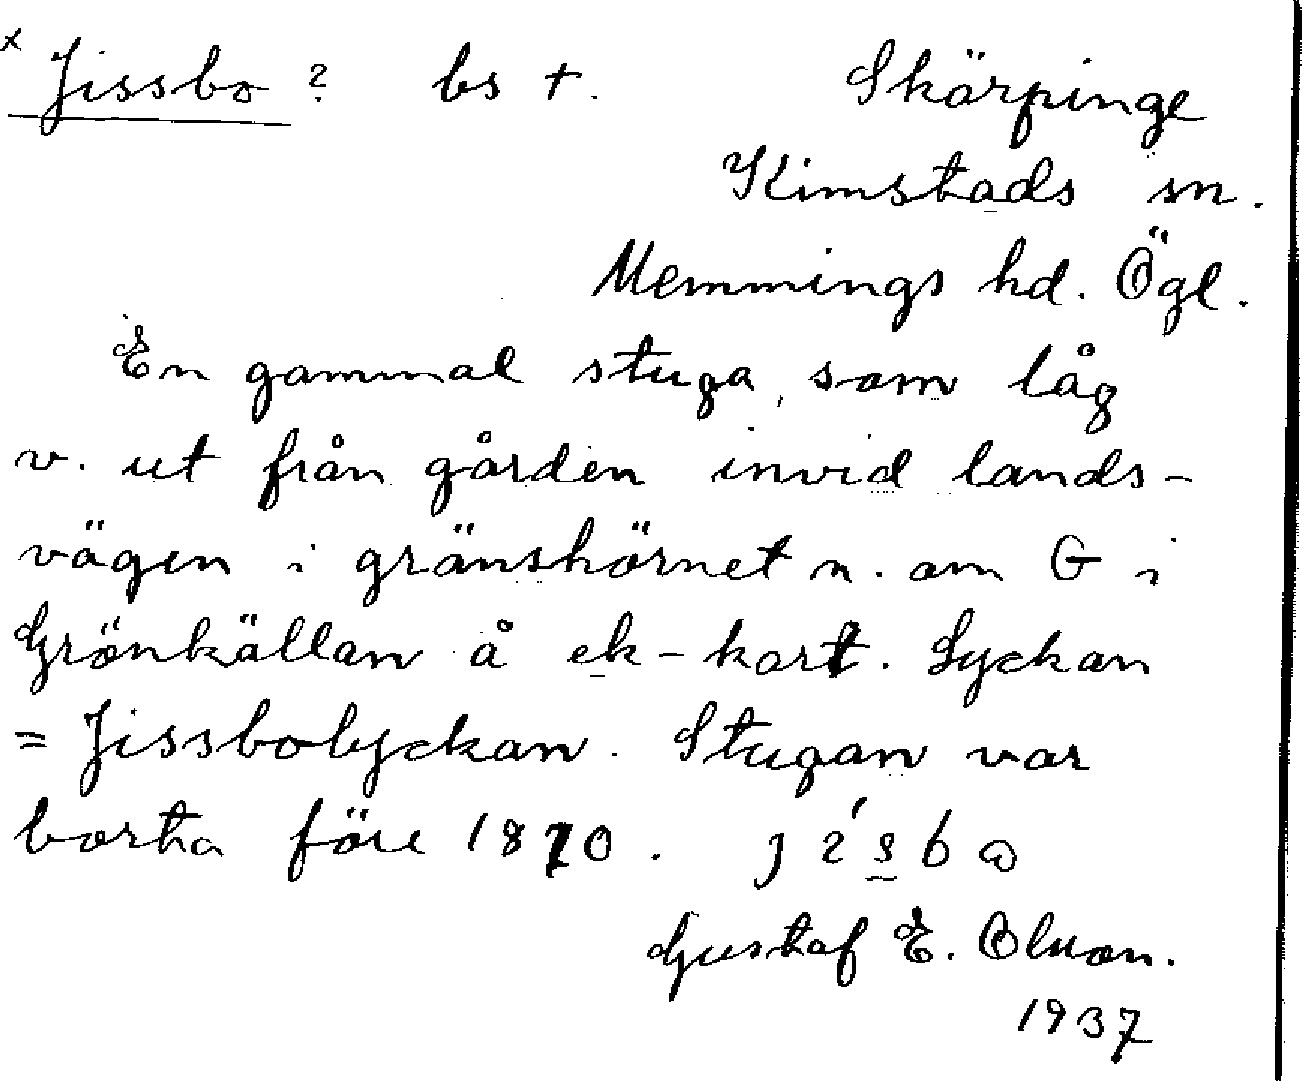 x Jissbo ? bs +. Skärpinge
Kimstads sn.
Memmings hd. Ögl.
En gammal stuga, som låg
v. ut från gården invid lands-
vägen i gränshörnet n. om G i
Grönkällan å ek-kart. Lyckan
= Jissbolyckan. Stugan var
borta före 1870.
Gustaf E. Olsson.
1937